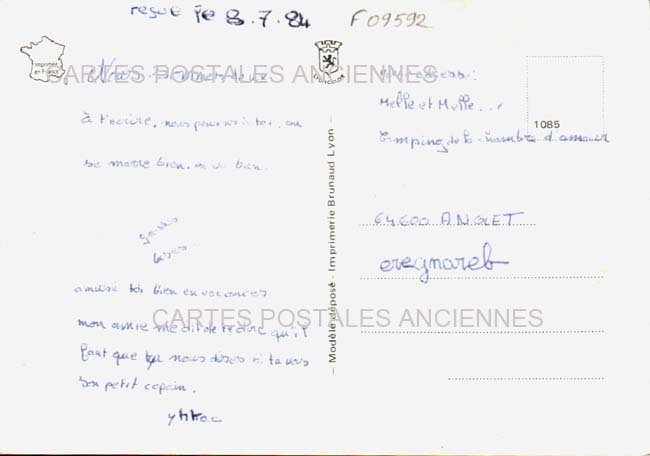 reçue le 3.7.84
F 09592
imprimée en France
CARTES POSTALES ANCIENNES
Nous sommes deux
à t'écrire, nous pensons à toi, on
se marre bien. on va bien.
gross
bises
amuse toi bien en vacances
mon amie me dit de te dire qu'il
faut que tu nous dises si ta vu
son petit copain.
- Modèle déposé - Imprimerie Brunaud Lyon -
Mon adresse:
Melle et Melle...
Camping de la chambre d'amour
64600 ANGLET
eregnareb
1085
CARTES POSTALES ANCIENNES